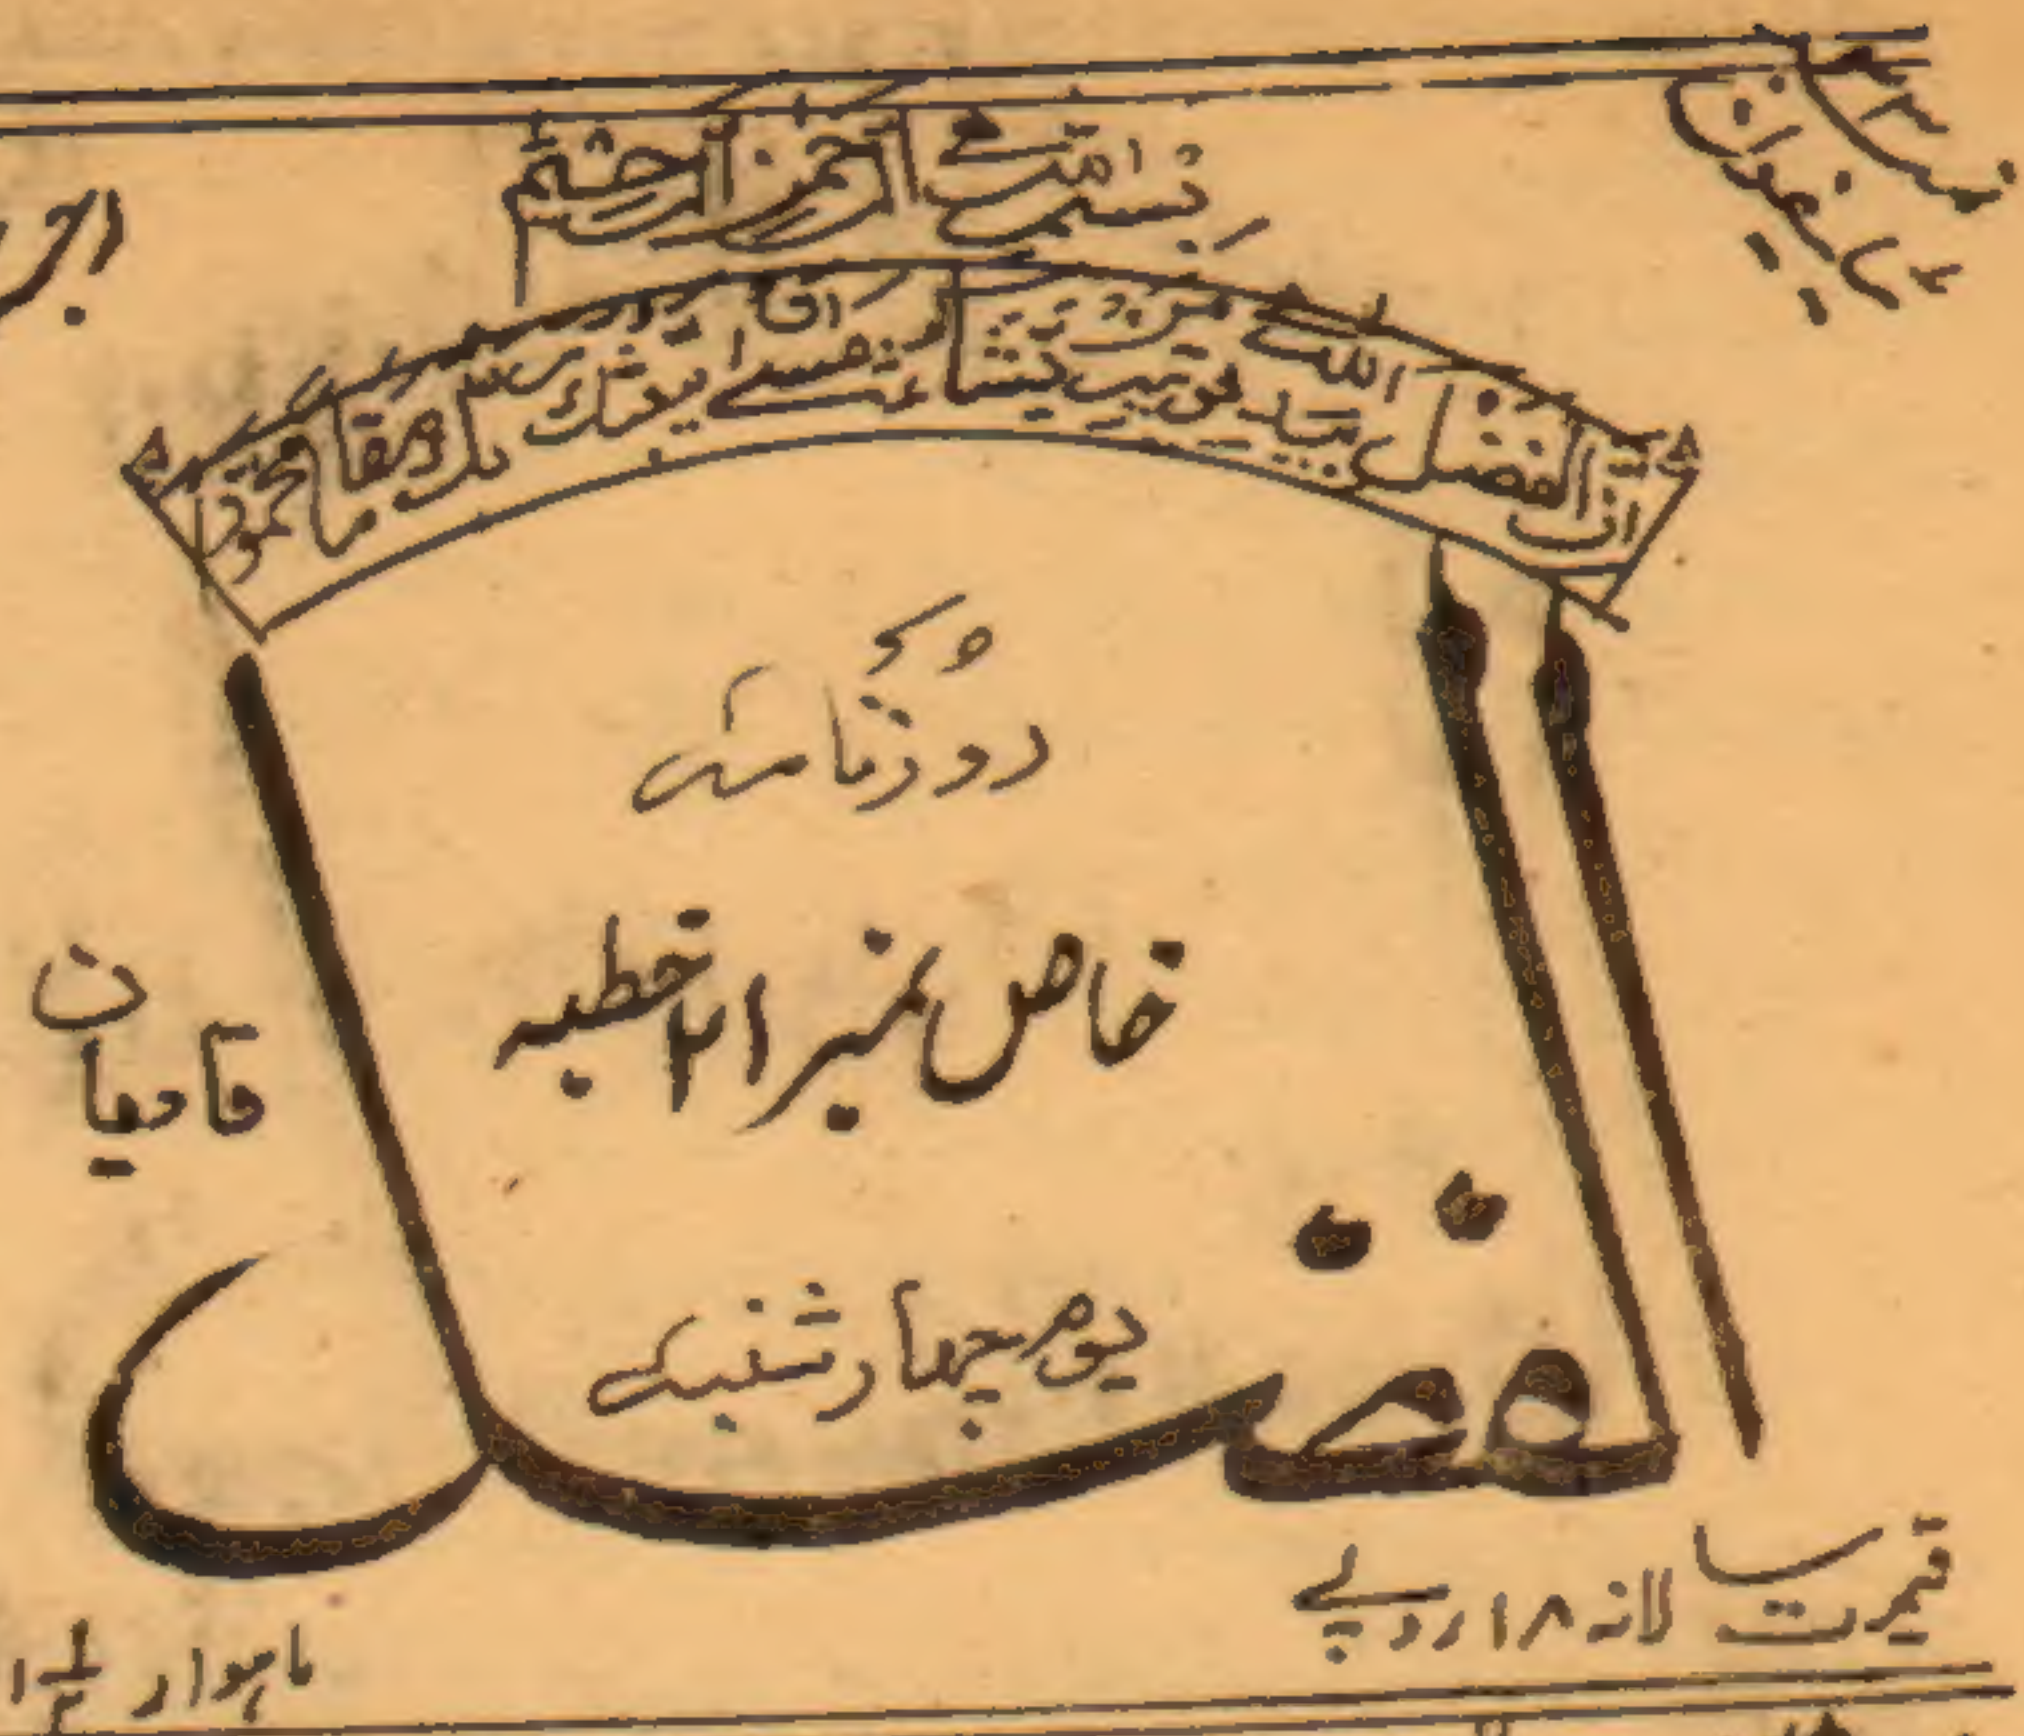 بسم اللہ الرحمٰن الرحیم
ٹیلیفون نمبر
ان الفضل بید اللہ یؤتیہ من یشاء عسیٰ ان یبعثک ربک مقاما محمودا
روزنامہ
قادیان
خاص نمبر ۲۱ خطبہ
الفضل
یوم چہار شنبہ
قیمت سالانہ ۱۸ روپے
ماہوار ۱ ۱/۲